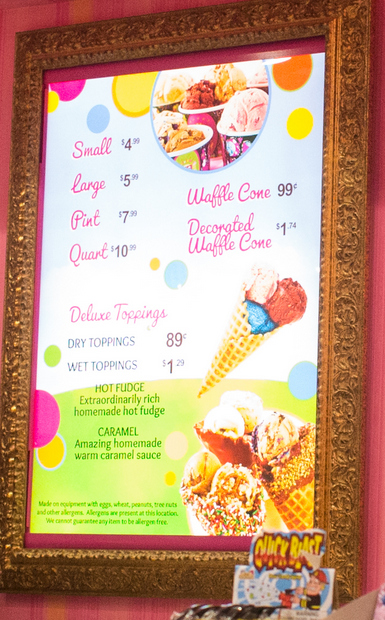 Small $4.99
Large $5.99
Pint $7.99
Quart $10.99
Waffle Cone 99¢
Decorated
Waffle Cone $1.74
Deluxe Toppings
DRY TOPPINGS 89¢
WET TOPPINGS $1.29
HOT FUDGE
Extraordinarily rich
homemade hot fudge
CARAMEL
Amazing homemade
warm caramel sauce
Made on equipment with eggs, wheat, peanuts, tree nuts
and other allergens. Allergens are present at this location.
We cannot guarantee any item to be allergen free.
QUICK BLAST